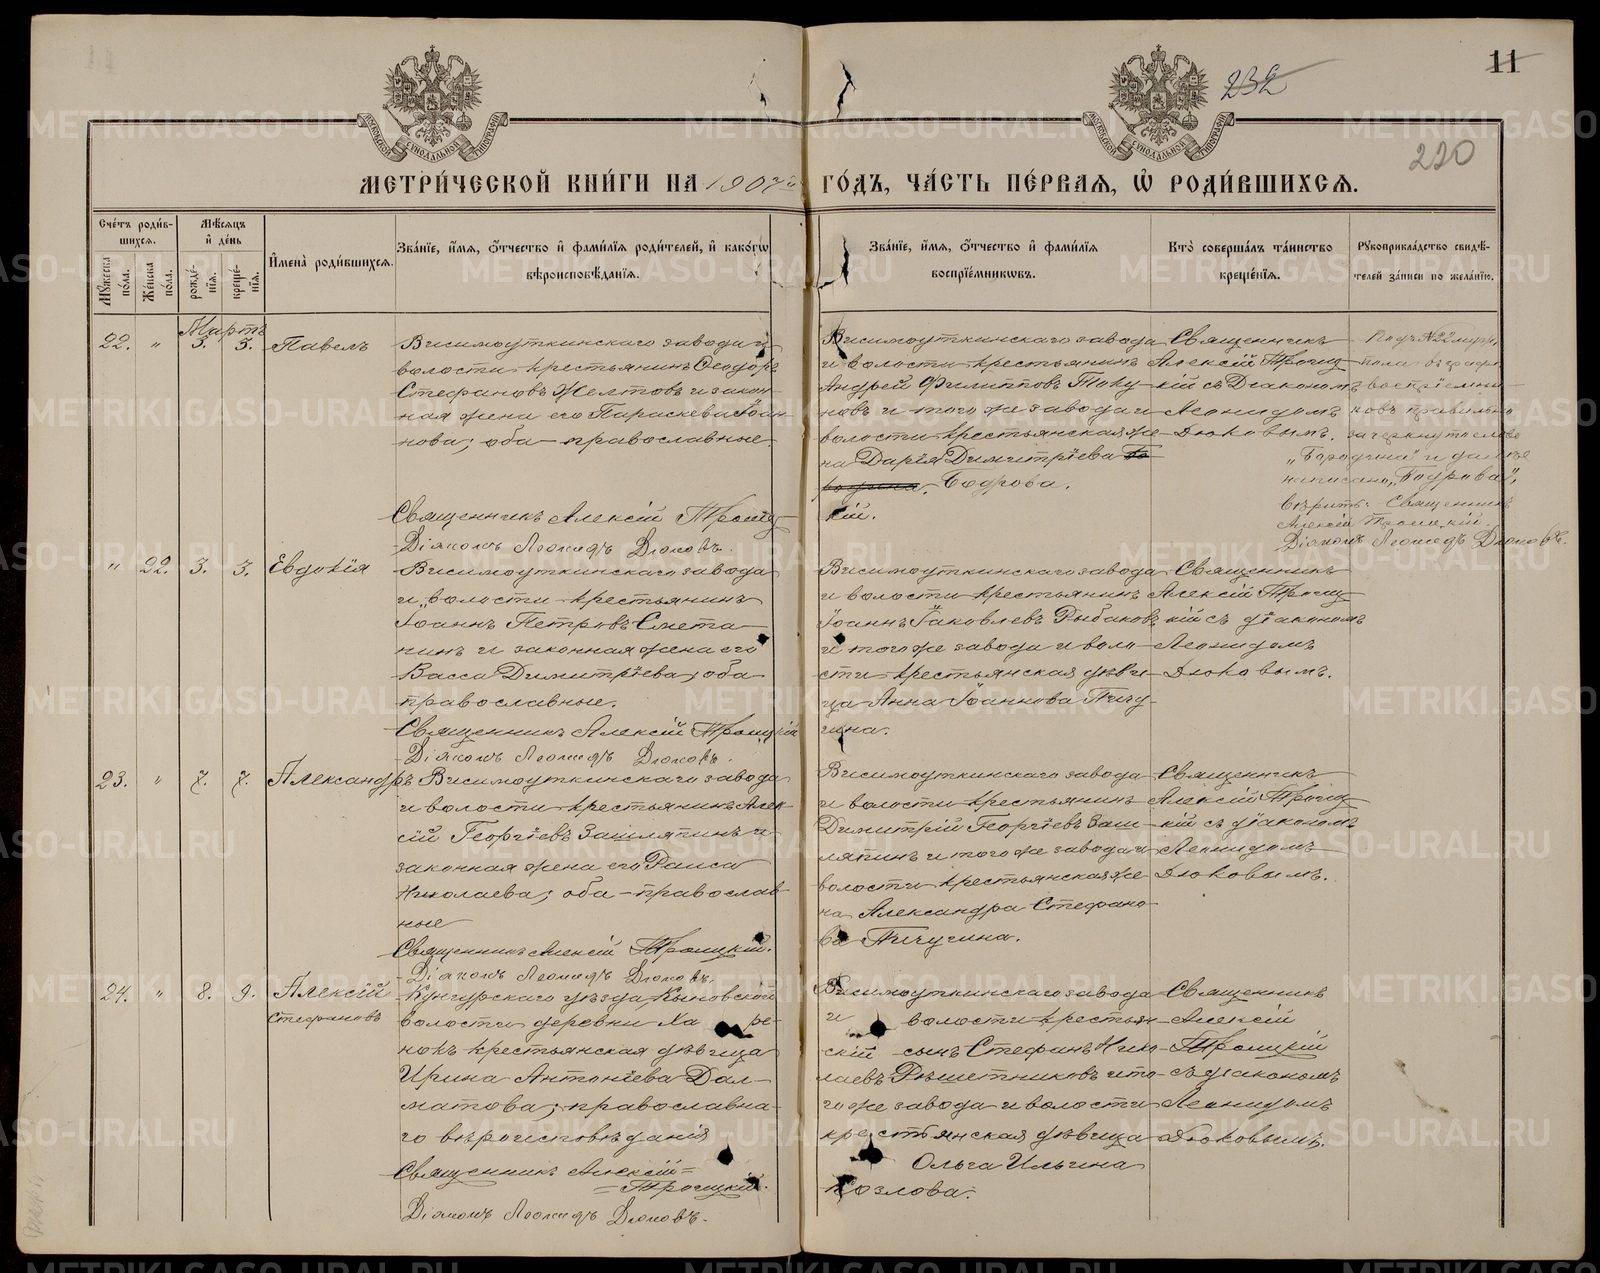 11
232
220
МОСКОВСКОЙ СѴНОДАЛЬНОЙ ТИПОГРАФІИ
МОСКОВСКОЙ СѴНОДАЛЬНОЙ ТИПОГРАФІИ
МЕТРИ́ЧЕСКОЙ КНИ́ГИ НА 1907й ГО́ДЪ, ЧА́СТЬ ПЕ́РВАЯ, Ѽ РОДИ́ВШИХСЯ.
Сче́тъ роди́в-
шихся.
Му́жеска по́ла.
Же́нска по́ла.
Мѣ́сяцъ
и҆ де́нь
рожде́-
нїя.
креще́-
нїя.
И҆мена̀ роди́вшихся.
Зва́нїе, и҆́мя, ѻ҆́тчество и҆ фами́лїя роди́телей, и҆ како́гѡ
вѣроисповѣ́данїя.
Зва́нїе, и҆́мя, ѻ҆́тчество и҆ фами́лїя
воспрїе́мниковъ.
Кто̀ соверша́лъ та́инство
креще́нїя.
Рꙋкоприкла́дство свидѣ́-
телей за́писи по жела́нїю.
Мартъ
22. " 3. 3. Павелъ
Висимоуткинскаго завода и
волости крестьянинъ Ѳеодоръ
Стефановъ Желтовъ и закон-
ная жена его Параскева Іоан-
нова; оба православные
Священникъ Алексій Троицкій.
Діаконъ Леонидъ Дюковъ.
Висимоуткинскаго завода
и волости крестьянинъ
Андрей Филипповъ Току-
новъ и того же завода и
волости крестьянская же-
на Дарія Димитріева Бо
родина. Бодрова.
Священникъ
Алексій Троиц-
кій съ Діакономъ
Леонидомъ
Дюковымъ.
Подъ № 22 муж.
пола въ графѣ
воспріемни-
ковъ правильно
зачеркнуто слово
„Бородина" и далѣе
написано „Бодрова",
вѣрить. Священникъ
Алексій Троицкій.
Діаконъ Леонидъ Дюковъ.
" 22. 3. 3. Евдокія
Висимоуткинскаго завода
и волости крестьянинъ
Іоаннъ Петровъ Смета-
нинъ и законная жена его
Васса Димитріева; оба
православные.
Священникъ Алексій Троицкій
Діаконъ Леонидъ Дюковъ.
Висимоуткинскаго завода
и волости крестьянинъ
Іоаннъ Іаковлевъ Рыбаковъ
и того же завода и воло-
сти крестьянская дѣви-
ца Анна Іоаннова Пичу-
гина.
Священникъ
Алексій Троиц-
кій съ діакономъ
Леонидомъ
Дюковымъ.
23. " 7. 7. Александръ
Висимоуткинскаго завода
и волости крестьянинъ Алек-
сій Георгіевъ Зашляпинъ и
законная жена его Раиса
Николаева; оба православ-
ные
Священникъ Алексій Троицкій.
Діаконъ Леонидъ Дюковъ.
Висимоуткинскаго завода
и волости крестьянинъ
Димитрій Георгіевъ Заш-
ляпинъ и того же завода и
волости крестьянская же-
на Александра Стефано-
ва Пичугина.
Священникъ
Алексій Троиц-
кій съ діакономъ
Леонидомъ
Дюковымъ.
24. " 8. 9. Алексій
Стефановъ
Кунгурскаго уѣзда Кыновской
волости деревни
крестьянская дѣвица
Ирина Антоніева Дал-
матова; православна-
го вѣроисповѣданія
Священникъ Алексій
Троицкій.
Діаконъ Леонидъ Дюковъ.
Висимоуткинскаго завода
и волости крестьян-
скій сынъ Стефанъ Нико-
лаевъ Рѣшетниковъ и то-
го же завода и волости
крестьянская дѣвица
Ольга Ильина
Козлова.
Священникъ
Алексій
Троицкій
съ діакономъ
Леонидомъ
Дюковымъ.
METRIKI.GASO-URAL.RU